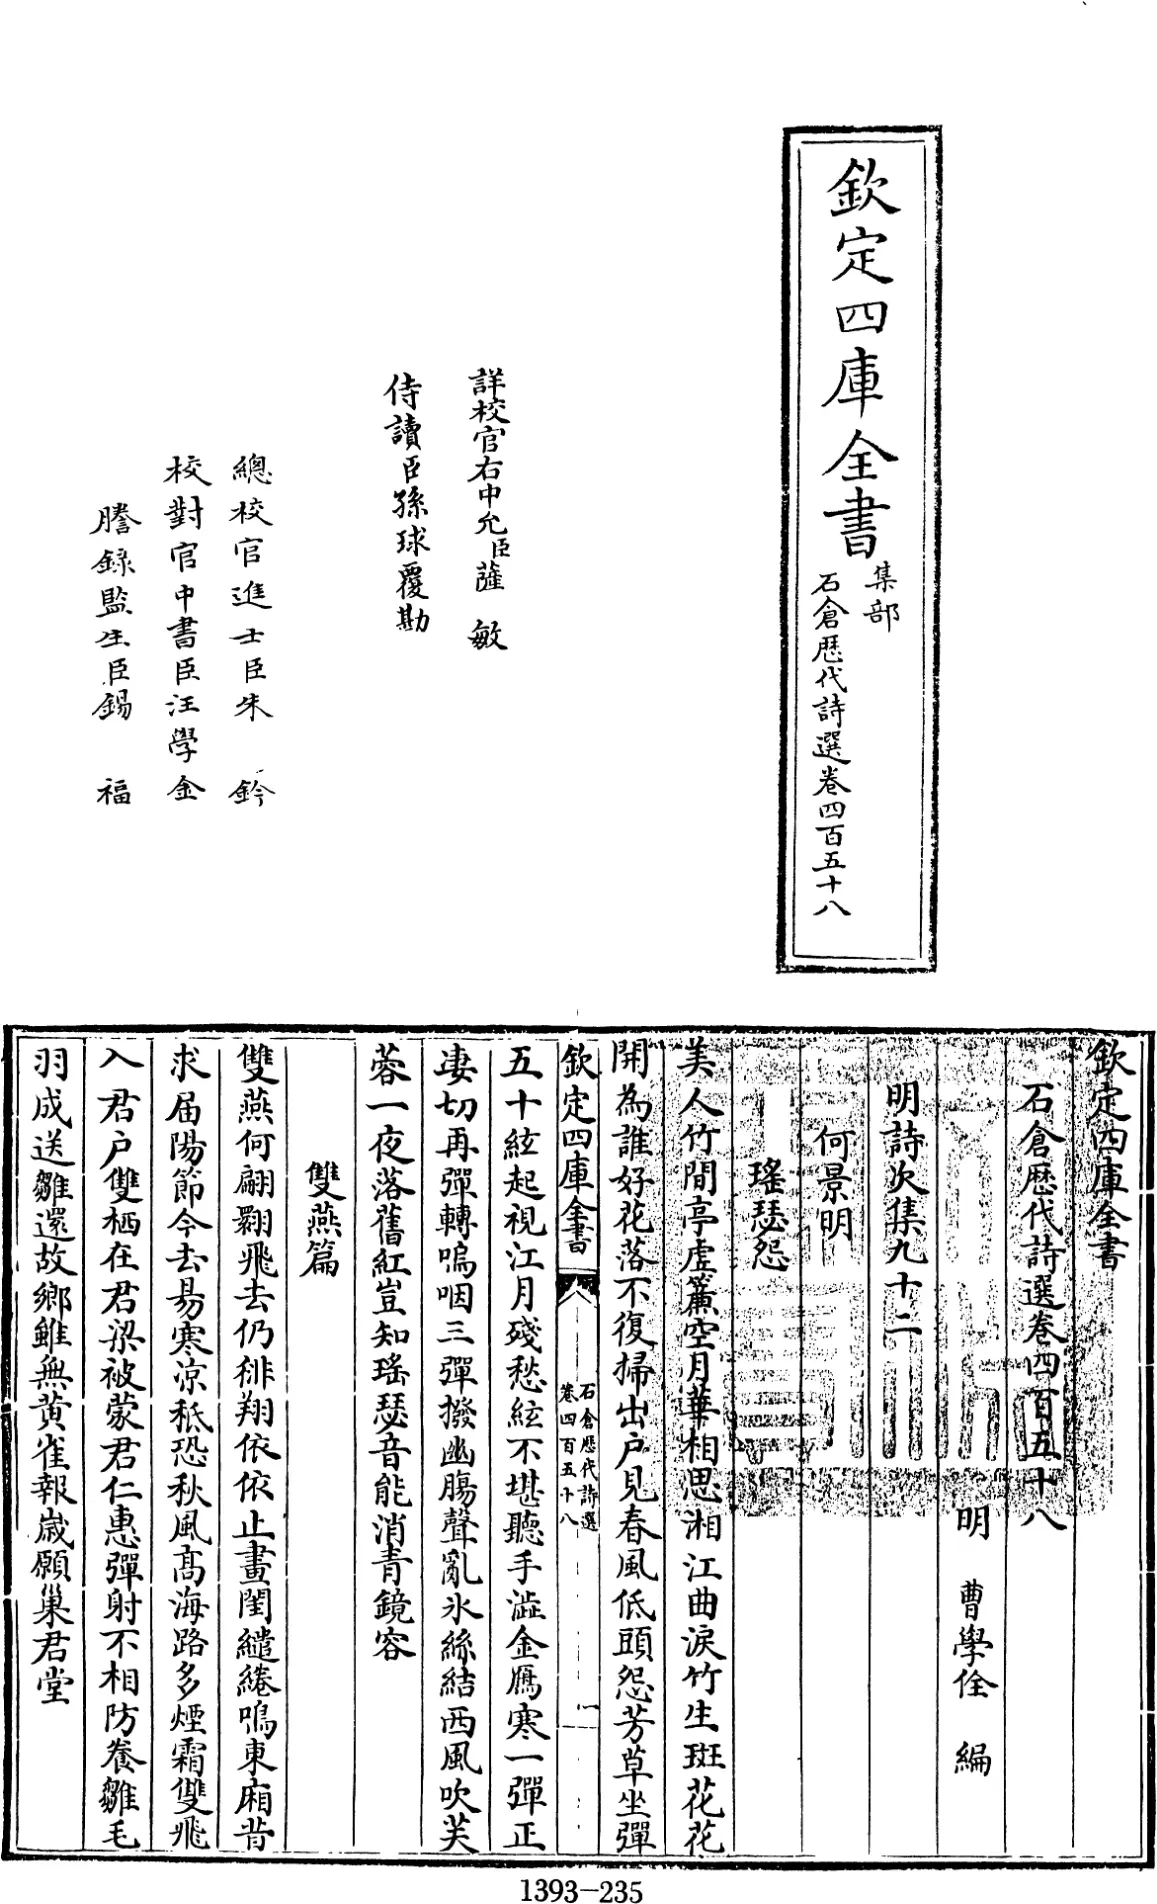 欽定四庫全書
集部
石倉歷代詩選卷四百五十八
詳校官右中允臣薩敏
侍讀臣孫球覆勘
總校官進士臣朱鈐
校對官中書臣汪學金
謄錄監生臣錫福
欽定四庫全書
石倉歷代詩選卷四百五十八
明 曹學佺 編
明詩次集九十二
何景明
瑤瑟怨
美人竹間亭虛簾空月華相思湘江曲淚竹生斑花花
開為誰好花落不復掃出戶見春風低頭怨芳草坐彈
欽定四庫全書
石倉歷代詩選
卷四百五十八
一
五十絃起視江月殘愁絃不堪聽手澁金鴈寒一彈正
凄切再彈轉嗚咽三彈撥幽腸聲亂氷絲結西風吹芙
蓉一夜落舊紅豈知瑤瑟音能消青鏡容
雙燕篇
雙燕何翩翾飛去仍徘翔依依止畫閨繾綣鳴東廂昔
求屆陽節今去易寒凉秪恐秋風高海路多煙霜雙飛
入君戶雙栖在君梁被蒙君仁惠彈射不相防養雛毛
羽成送雛還故鄉雖無黄雀報歲願巢君堂
1393-235